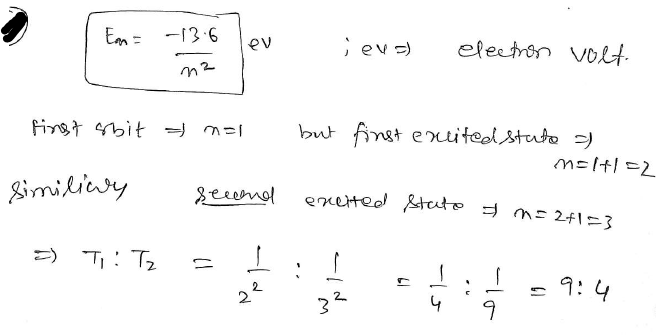 En = -13.6/n² ev ; ev ⇒ electron volt.
first orbit ⇒ n=1 but first excited state ⇒ n=1+1=2
Similiary second excited state ⇒ n=2+1=3
⇒ T₁ : T₂ = 1/2² : 1/3² = 1/4 : 1/9 = 9:4